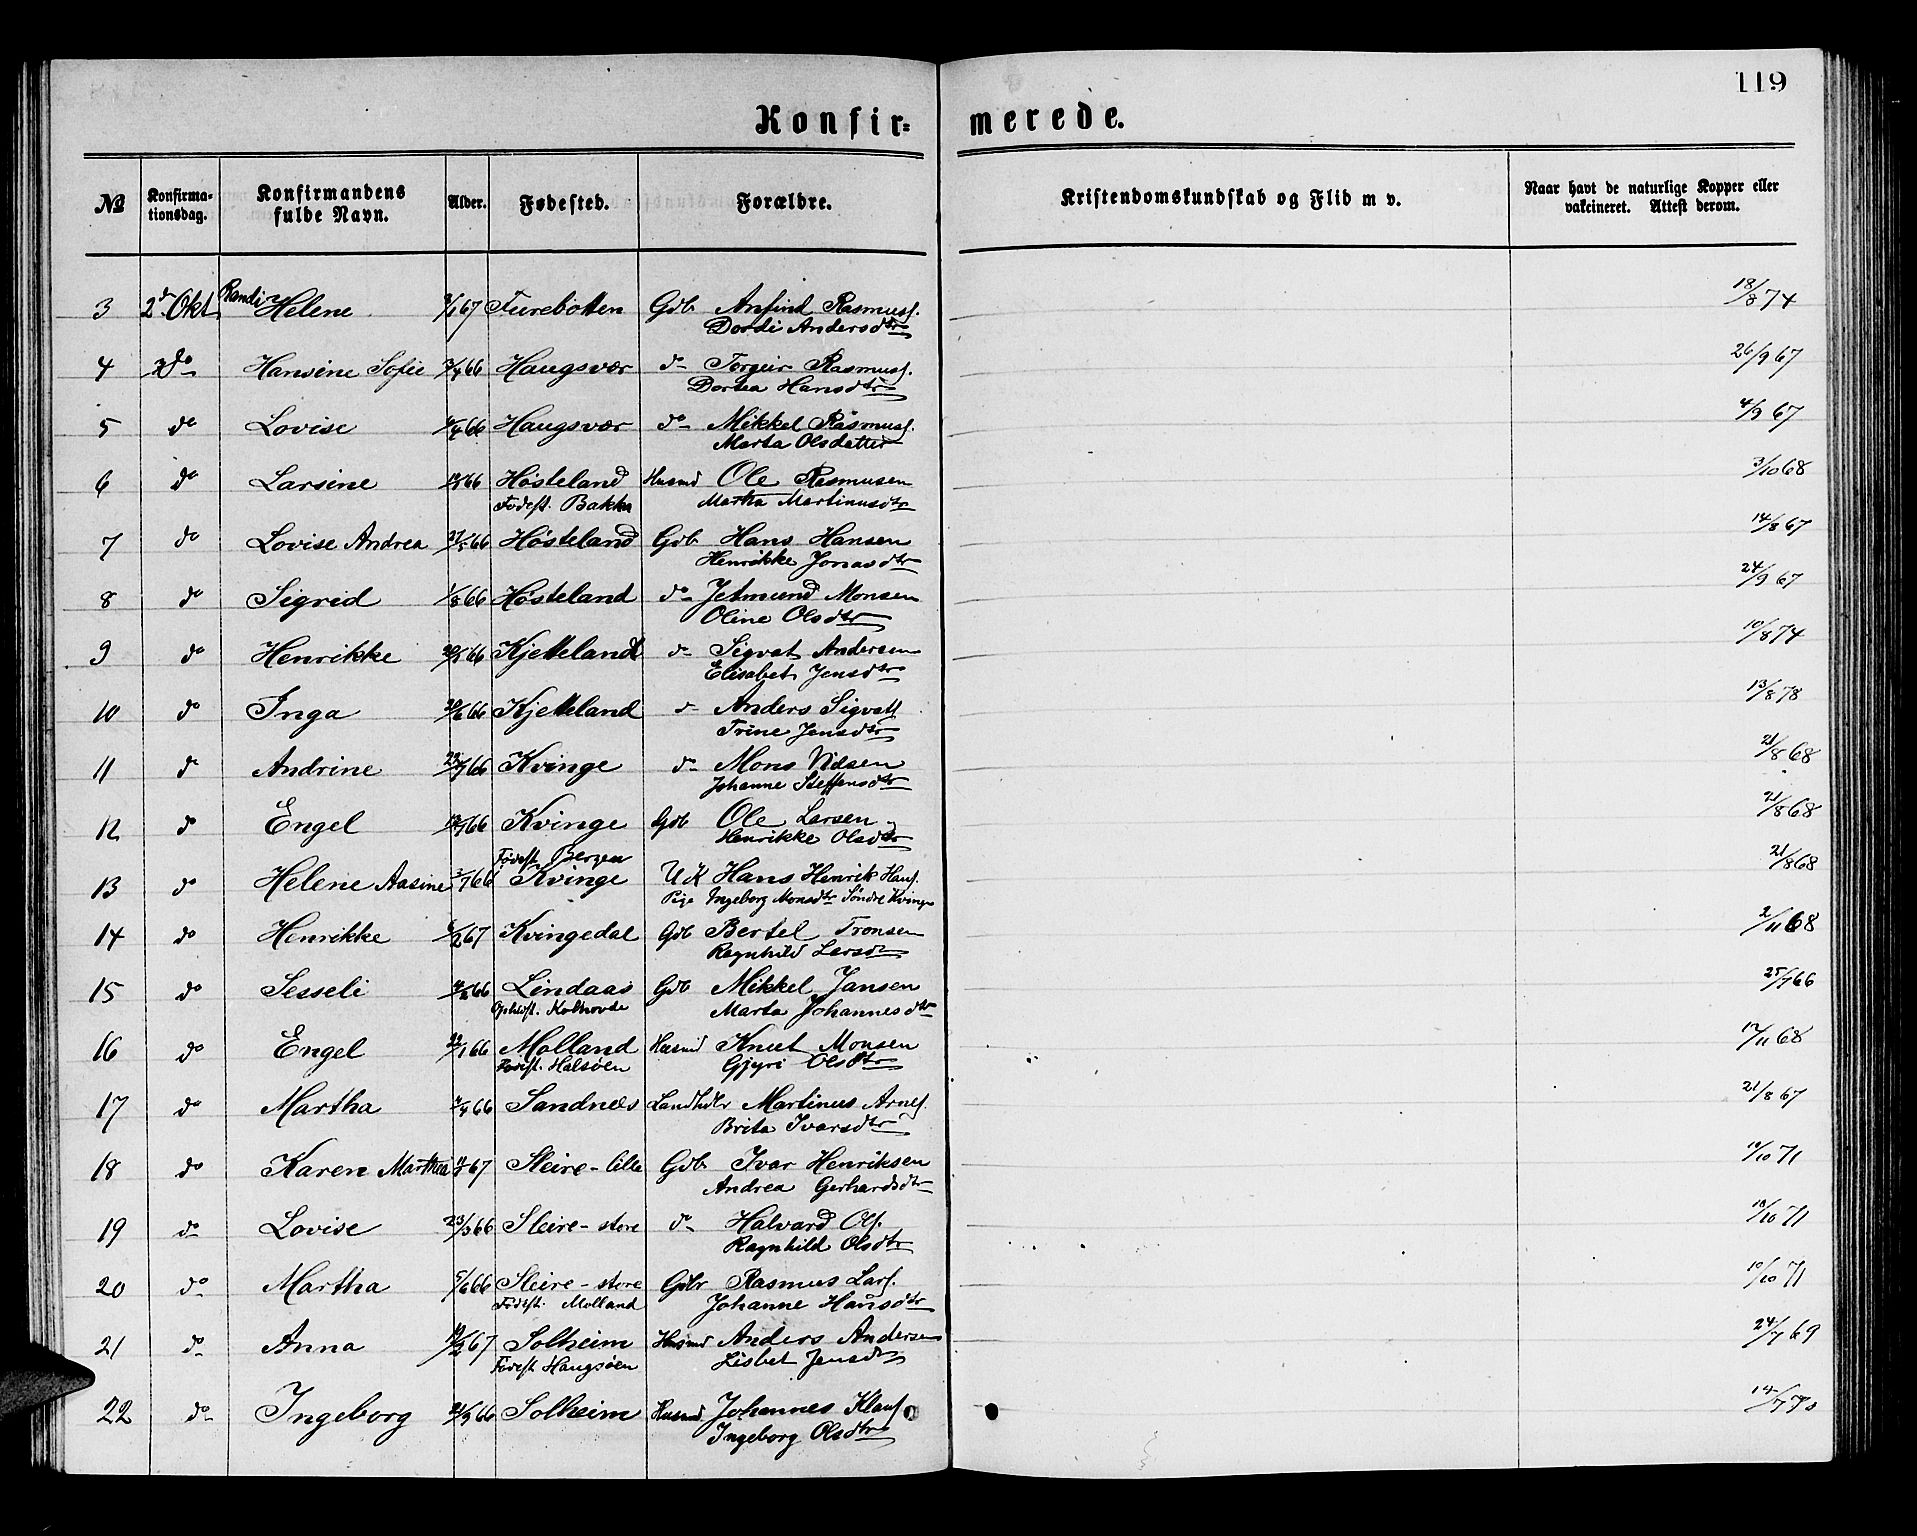 119
Konfir- merede.
№ Konfirma-tionsdag. Konfirmandens fulde Navn. Alder. Fødested. Forældre. Kristendomskundskab og Flid m v. Naar havt de naturlige Kopper eller vakcineret. Attest derom.
3 2d Okt Randi Helene /1 67 Furebotten Gdb Anfind Rasmuss. 18/8 74
Dordi Andersdtr
4 do Hansine Sofie /4 66 Haugsvær do Torgeir Rasmuss. 26/9 67
Dortea Hansdtr
5 do Lovise 66 Haugsvær do Mikkel Rasmuss. 4/9 67
Marta Olsdatter
6 do Larsine 66 Høsteland Husmd Ole Rasmusen 3/10 68
Fødest. Bakka Martha Martinusdtr
7 do Lovise Andrea 27/5 66 Høsteland Gdb Hans Hansen 14/8 67
Henrikke Jonasdtr
8 do Sigrid 1/8 66 Høsteland do Jetmund Monsen 24/9 67
Oline Olsdtr
9 do Henrikke 66 Kjetteland do Sigvat Andersen 10/8 74
Elisabet Jensdtr
10 do Inga 66 Kjetteland do Anders Sigvats 13/8 78
Trine Jensdtr
11 do Andrine 66 Kvinge do Mons Nilsen 21/8 68
Johanne Steffensdtr
12 do Engel 66 Kvinge Gdb Ole Larsen 21/8 68
Henrikke Olsdtr
Fødest. Bergen
13 do Helene Aasine /7 66 Kvinge UK Hans Henrik Hans. 21/8 68
Pige Ingeborg Monsdtr Søndre Kvinge
14 do Henrikke /2 67 Kvingedal Gdb Bertel Tronsen 2/11 68
Ragnhild Larsdtr
15 do Sesseli 66 Lindaas Gdb Mikkel Jansen 25/7 66
Opholdst. Kolhovde Marta Johannesdtr
16 do Engel 22/1 66 Molland Husmd Knut Monsen 17/11 68
Fødest. Halsøen Gjyri Olsdtr
17 do Martha /4 66 Sandnes Landhdlr Martinus Arnes. 21/8 67
Brita Ivarsdtr
18 do Karen Marthea 67 Sleire-lille Gdb Ivar Henriksen 10/10 71
Andrea Gerhardsdtr
19 do Lovise 23/3 66 Sleire-store do Halvard Ols. 10/10 71
Ragnhild Olsdtr
20 do Martha 5/6 66 Sleire-store Gdbr Rasmus Lars. 10/10 71
Fødest. Molland Johanne Hansdtr
21 do Anna 67 Solheim Husmd Anders Andersen 24/7 69
Fødest. Haugsøen Lisbet Jensdtr
22 do Ingeborg 21/9 66 Solheim Husmd Johannes Klaus. 14/7 70
Ingeborg Olsdtr